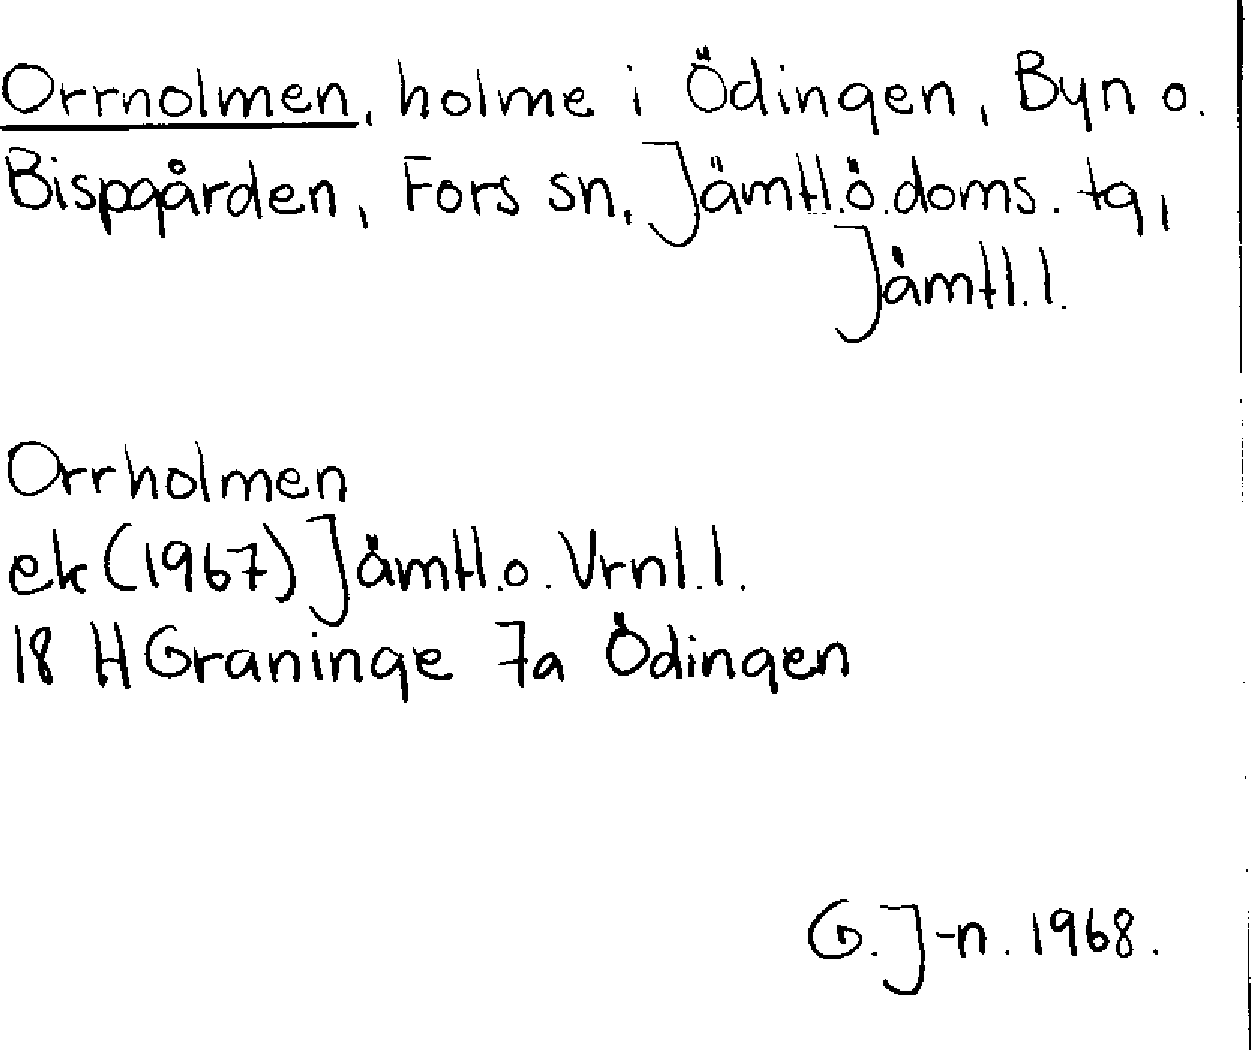 Orrholmen, holme i Ödingen, Byn o.
Bispgården, Fors sn, Jämtl.ö.doms. tg,
Jämtl.l.
Orrholmen
ek (1967) Jämtl.o. Vrnl.l.
18 H Graninge 7a Ödingen
G. J-n. 1968.